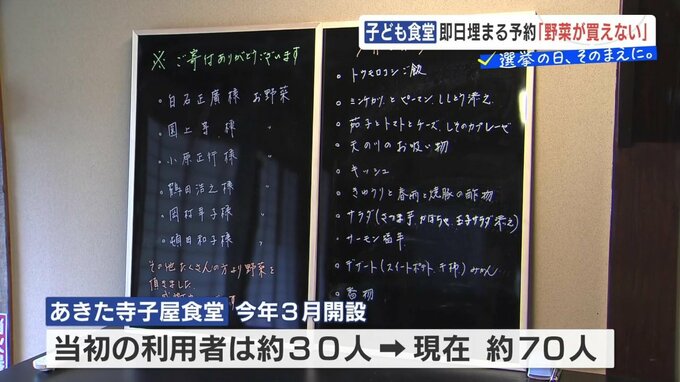 子ども食堂 即日埋まる予約「野菜が買えない」
選挙の日、そのまえに。
※ ご寄付ありがとうございます
・白石正廣様 お野菜
・国上 様 〃
・小原正行様 〃
・鶴田浩之様 〃
・岡村年子様 〃
・頓田和子様 〃
その他たくさんの方より野菜を
頂きました
・トウモロコシご飯
・ミンチカツとピーマン、ししとう添え
・茄子とトマトとチーズ、しそのカプレーゼ
・天の川のお吸い物
・キッシュ
・きゅうりと春雨と焼豚の酢物
・サラダ(さつま芋、かぼちゃ、玉子サラダ添え)
・サーモン
・デザート(スイートポテト、干柿)みかん
・香物
あきた寺子屋食堂 今年3月開設
当初の利用者は約30人➡現在 約70人